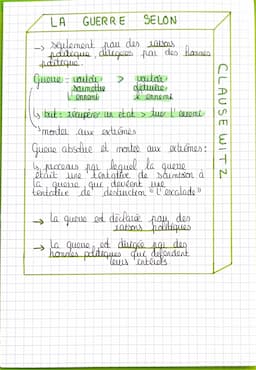 LA GUERRE SELON
CLAUSEWITZ
→ seulement pour des raisons
politique, dirigées par des hommes
politique.
Guerre : volonté > volonté
soumettre détruire
l'ennemi l'ennemi
↳ but : récupérer un état > tuer l'ennemi
↳ montée aux extrêmes
Guerre absolue et montée aux extrêmes :
↳ processus par lequel la guerre
était une tentative de soumission à
la guerre qui devient une
tentative de destruction "l'escalade"
→ la guerre est déclarée pour des
raisons politiques
→ la guerre est dirigée par des
hommes politiques qui défendent
leurs intérêts